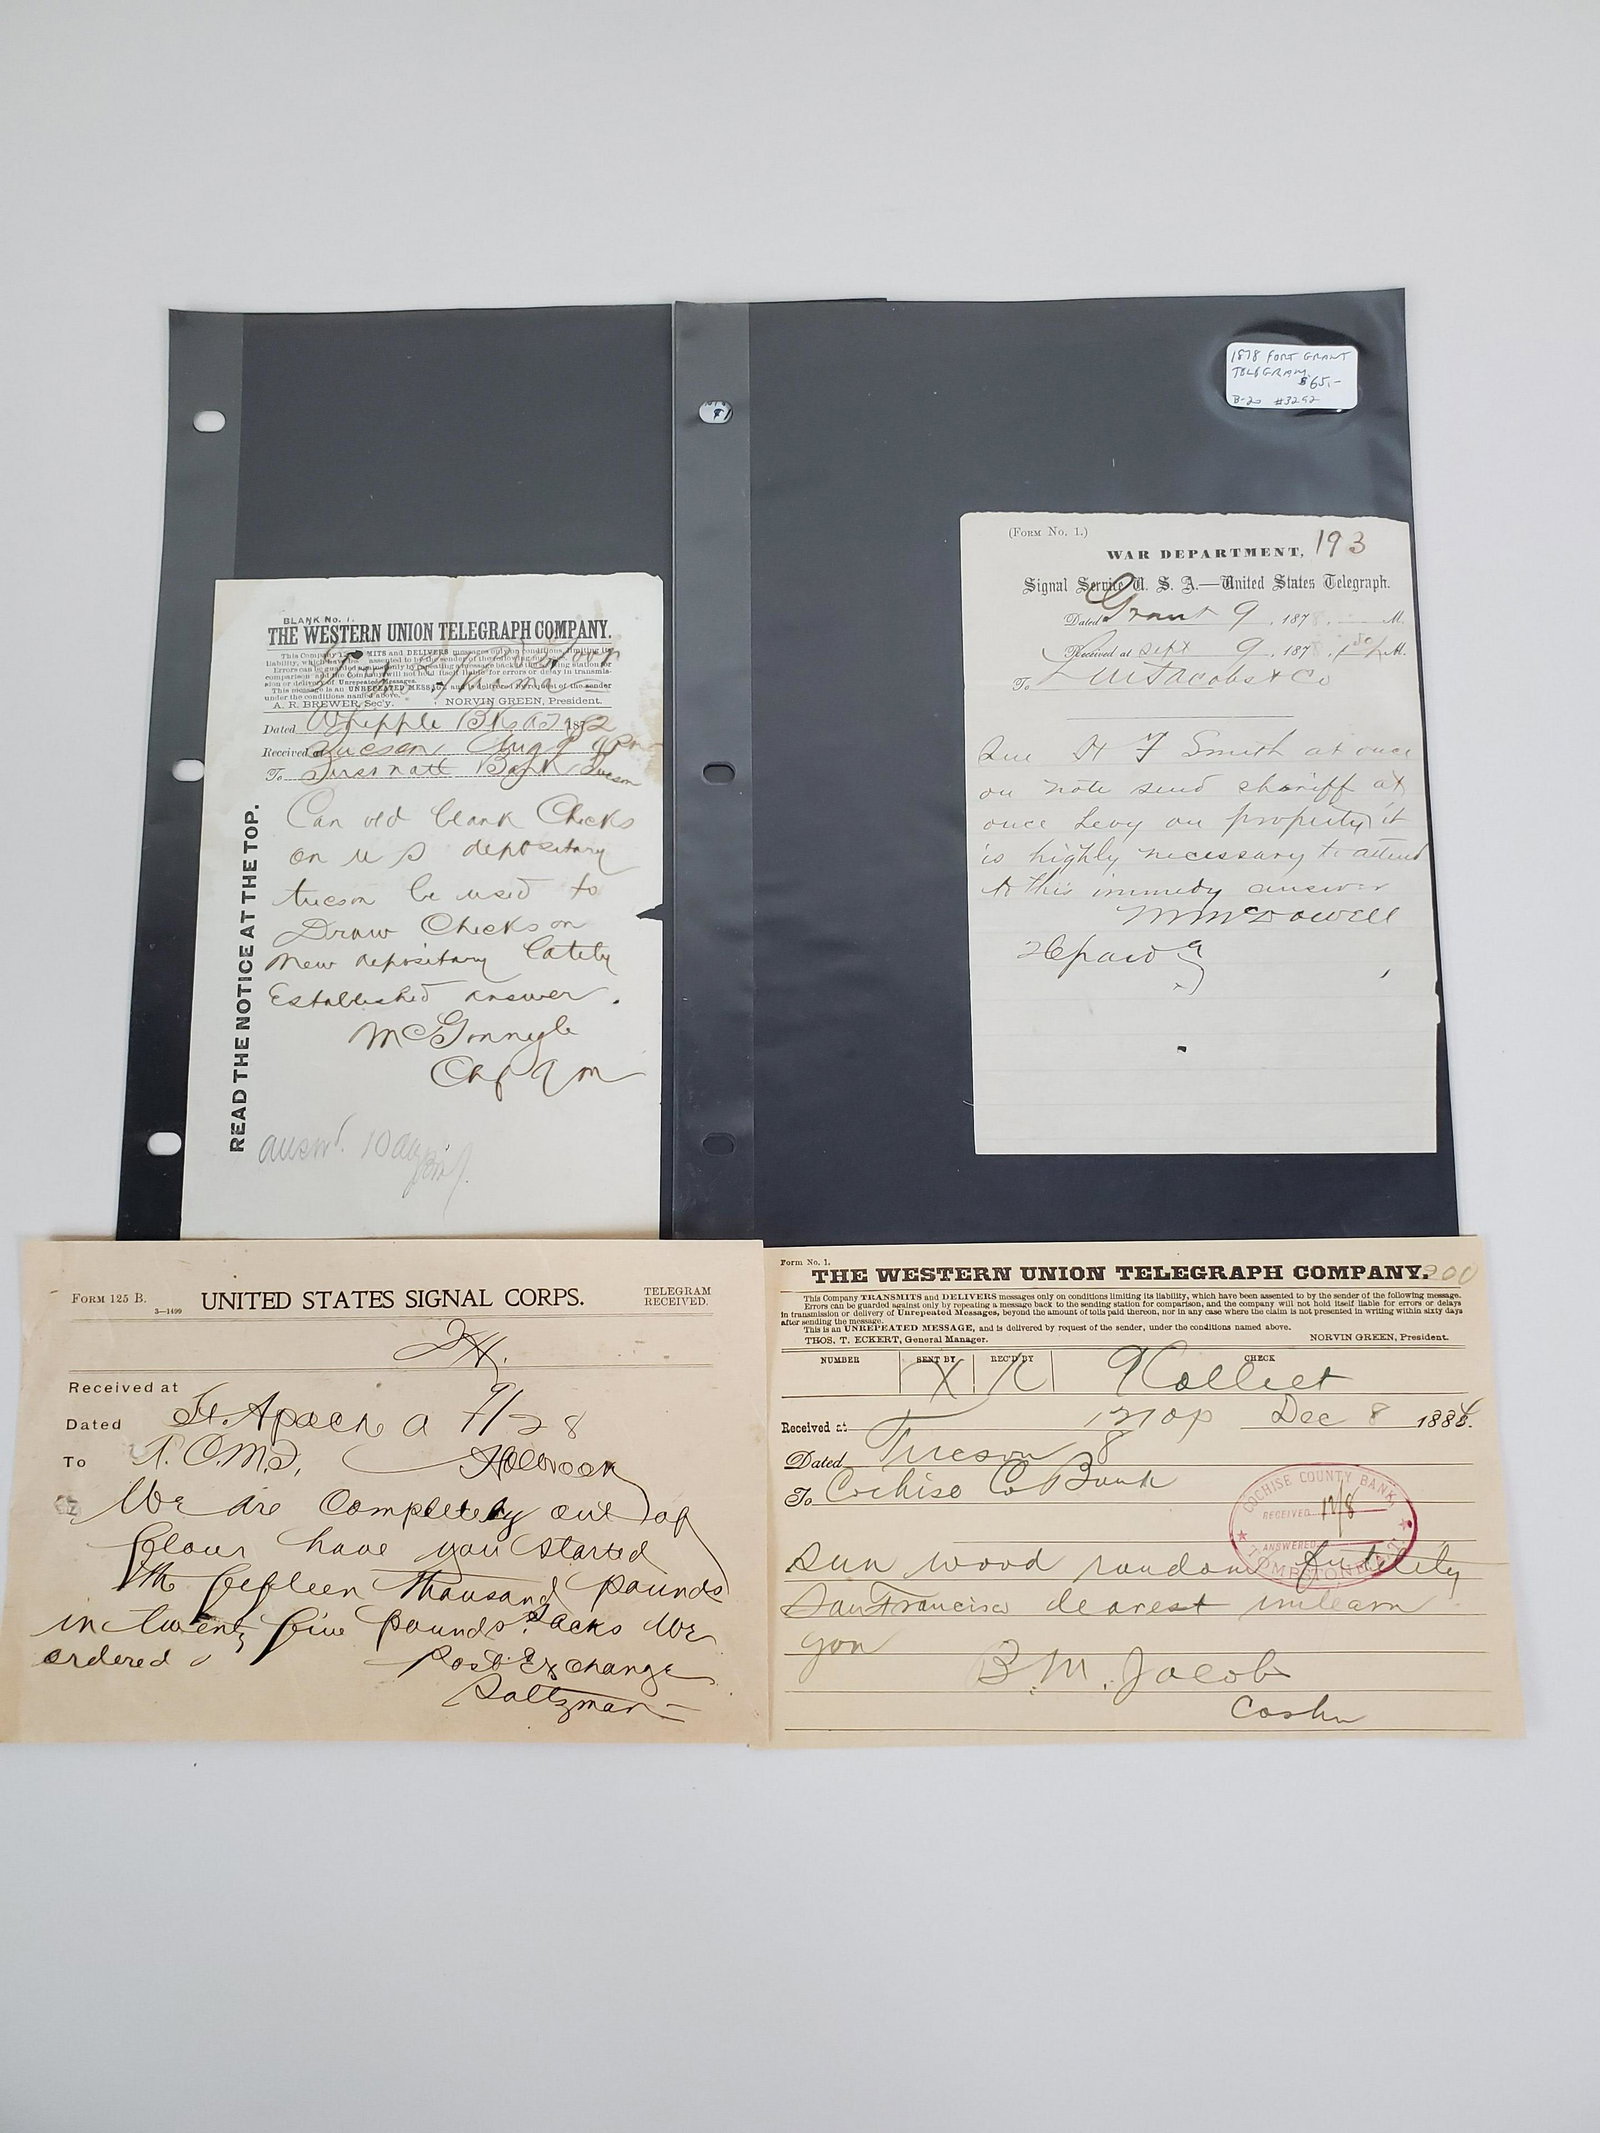 1878 FORT GRANT
TELEGRAM
$65.-
B-20 #3292
BLANK No. 1.
THE WESTERN UNION TELEGRAPH COMPANY.
This Company TRANSMITS and DELIVERS messages only on conditions limiting its
liability, which have been assented to by the sender of the following message.
Errors can be guarded against only by repeating a message back to the sending station for
comparison and the Company will not hold itself liable for errors or delay in transmis-
sion or delivery of Unrepeated Messages.
This message is an UNREPEATED MESSAGE and is delivered by request of the sender
under the conditions named above.
A. R. BREWER, Sec'y. NORVIN GREEN, President.
Dated Whipple Bks 1882
Received at Tucson, Aug 9
To Bank Tucson
Can old blank Checks
on U S depositary
tucson be used to
Draw Checks on
New depositary lately
Established answer.
McGonnigle
READ THE NOTICE AT THE TOP.
answd. 10 aug
(Form No. 1.)
WAR DEPARTMENT, 193
Signal Service U. S. A.—United States Telegraph.
Dated Grant 9, 187 M.
Received at Sept 9, 187 M.
To L M Jacobs & Co
Sue H F Smith at once
on note send sheriff at
once Levy on property it
is highly necessary to attend
to this immedy answer
M McDowell
Form 125 B.
3—1499
UNITED STATES SIGNAL CORPS.
TELEGRAM
RECEIVED.
Received at
Dated Ft. Apache a 9/28
To Holbrook
We are Completely out of
flour have you started
the fifteen thousand pounds
in twenty five pounds Sacks We
ordered
Post Exchange
Saltzman
Form No. 1.
THE WESTERN UNION TELEGRAPH COMPANY. 200
This Company TRANSMITS and DELIVERS messages only on conditions limiting its liability, which have been assented to by the sender of the following message.
Errors can be guarded against only by repeating a message back to the sending station for comparison, and the company will not hold itself liable for errors or delays
in transmission or delivery of Unrepeated Messages, beyond the amount of tolls paid thereon, nor in any case where the claim is not presented in writing within sixty days
after sending the message.
This is an UNREPEATED MESSAGE, and is delivered by request of the sender, under the conditions named above.
THOS. T. ECKERT, General Manager. NORVIN GREEN, President.
NUMBER SENT BY REC'D BY CHECK
X 9 Collect
Received at 1210p Dec 8 1884.
Dated Tucson 8
To Cochise Co Bank
COCHISE COUNTY BANK,
RECEIVED 12/8
ANSWERED
TOMBSTONE
sun wood random futility
San Francisco dearest unlearn
you
B. M. Jacobs
Cashr